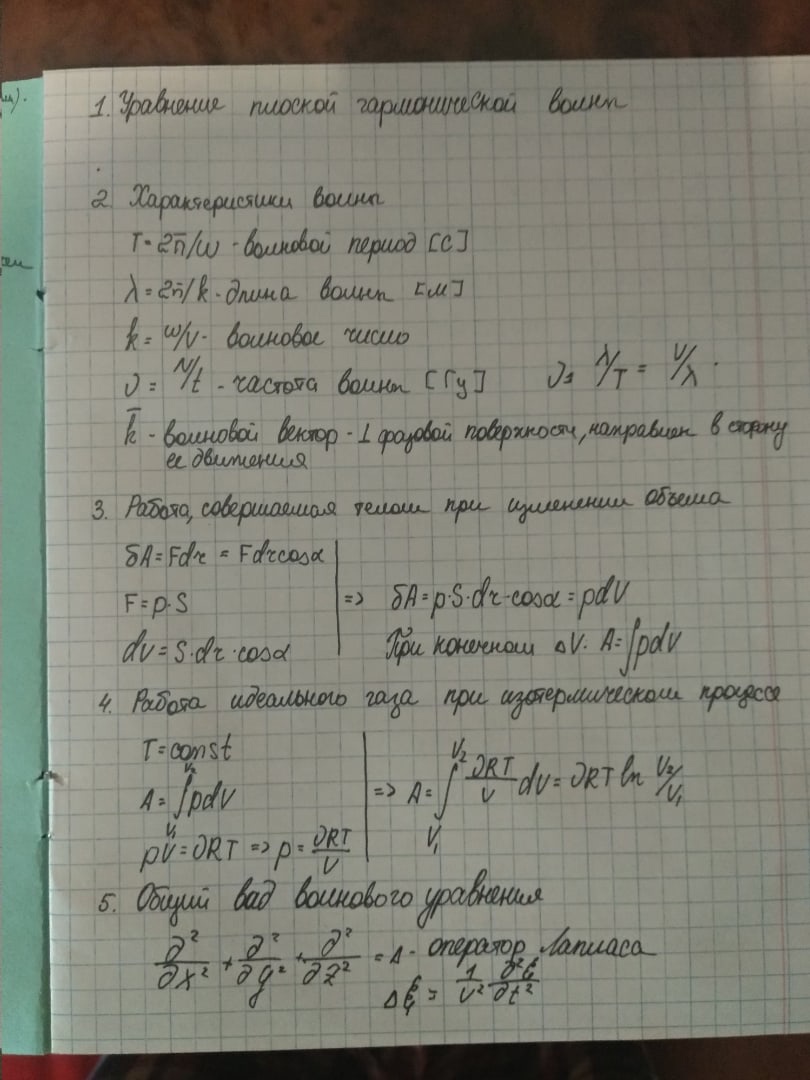 1. Уравнение плоской гармонической волны
2. Характеристики волны
T = 2π/ω - волновой период [С]
λ = 2π/k - длина волны [м]
k = ω/v - волновое число
ν = N/t - частота волны [Гц] ν = λ/T = v/λ.
k̅ - волновой вектор - ⊥ фазовой поверхности, направлен в сторону
ее движения
3. Работа, совершаемая телом при изменении объема
δA = Fdr = Fdrcosα
F = p·S => δA = p·S·dr·cosα = pdV
dv = S·dr·cosα При конечном ΔV. A = ∫pdV
4. Работа идеального газа при изотермическом процессе
T = const
A = ∫_{V₁}^{V₂} pdV => A = ∫_{V₁}^{V₂} νRT/V dV = νRT ln V₂/V₁
pV = νRT => p = νRT/V
5. Общий вад волнового уравнения
∂²/∂x² + ∂²/∂y² + ∂²/∂z² = Δ - оператор Лапласа
Δξ = 1/v² ∂²ξ/∂t²